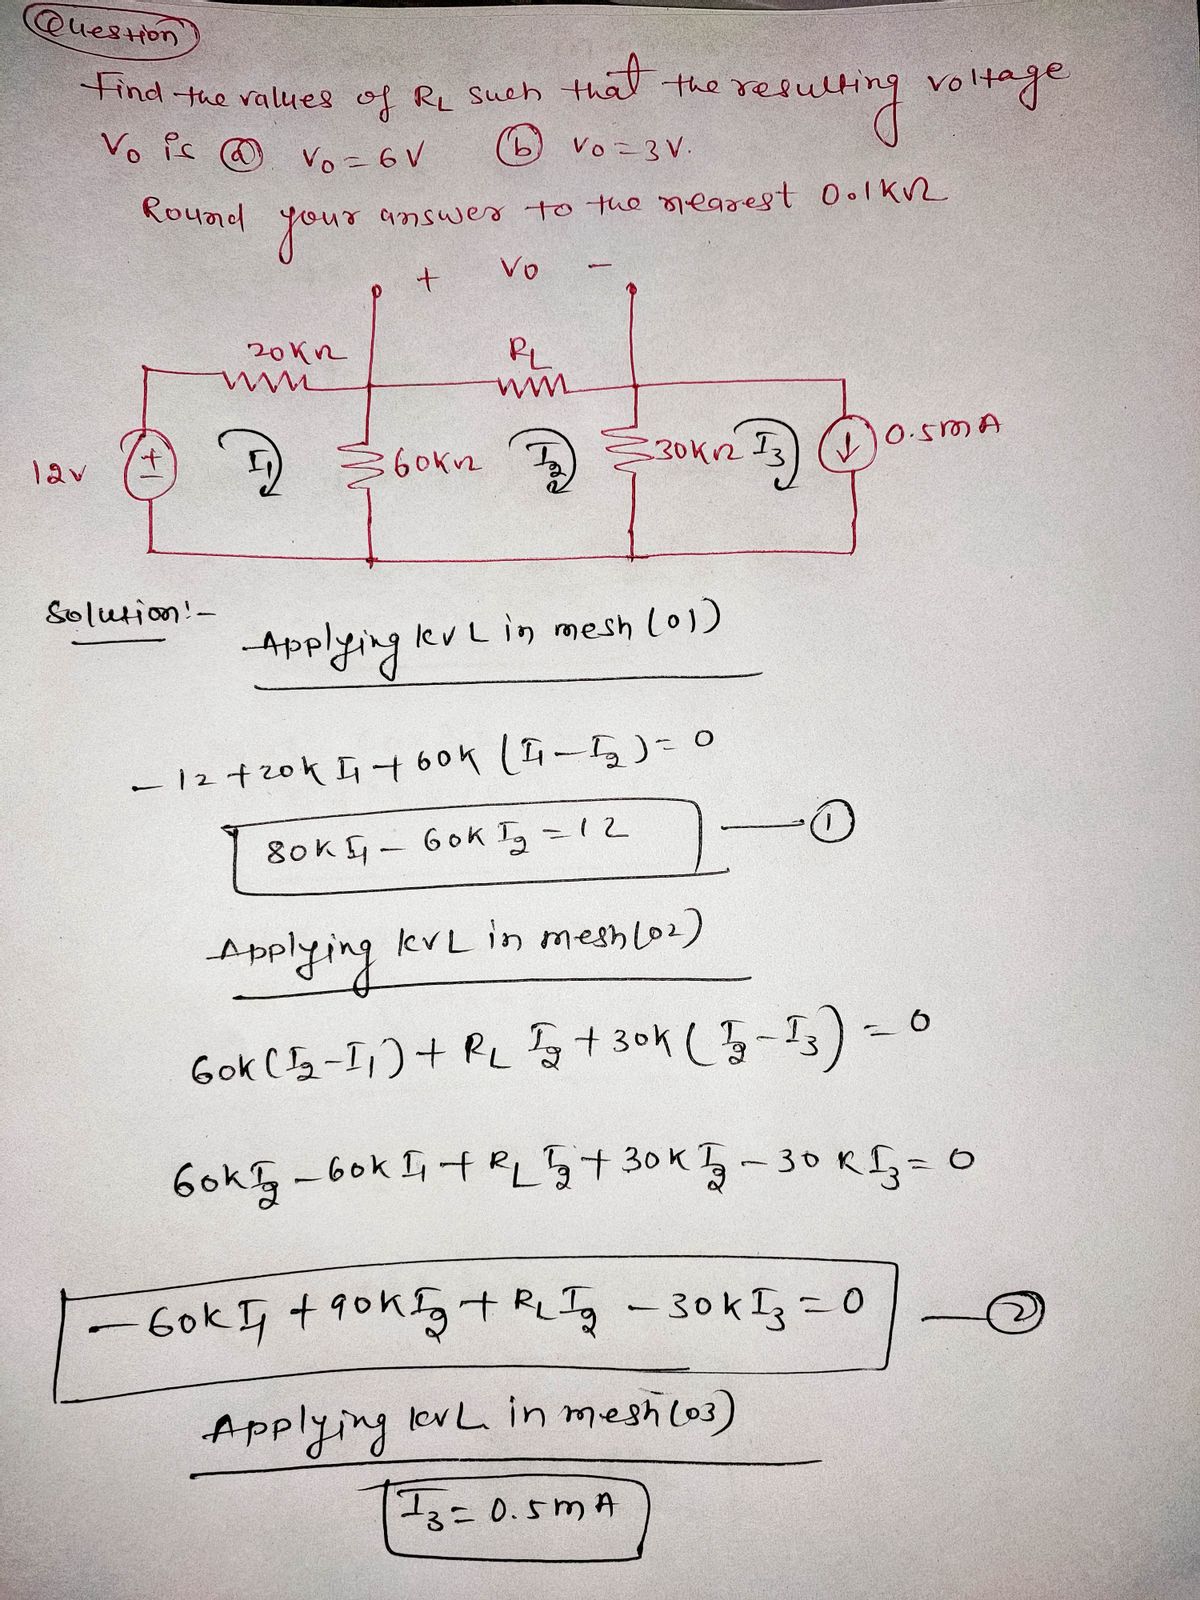 Question
Find the values of RL such that the resulting voltage
Vo is ⓐ Vo = 6V ⓑ Vo = 3V.
Round your answer to the nearest 0.1KΩ
+ Vo −
20KΩ RL
12V + − I1 60KΩ I2 30KΩ I3 ↓ 0.5mA
Solution:-
Applying KVL in mesh (01)
-12 + 20K I1 + 60K (I1 - I2) = 0
80K I1 - 60K I2 = 12 — ①
Applying KVL in mesh (02)
60K (I2 - I1) + RL I2 + 30K (I2 - I3) = 0
60K I2 - 60K I1 + RL I2 + 30K I2 - 30K I3 = 0
-60K I1 + 90K I2 + RL I2 - 30K I3 = 0 — ②
Applying KVL in mesh (03)
I3 = 0.5mA